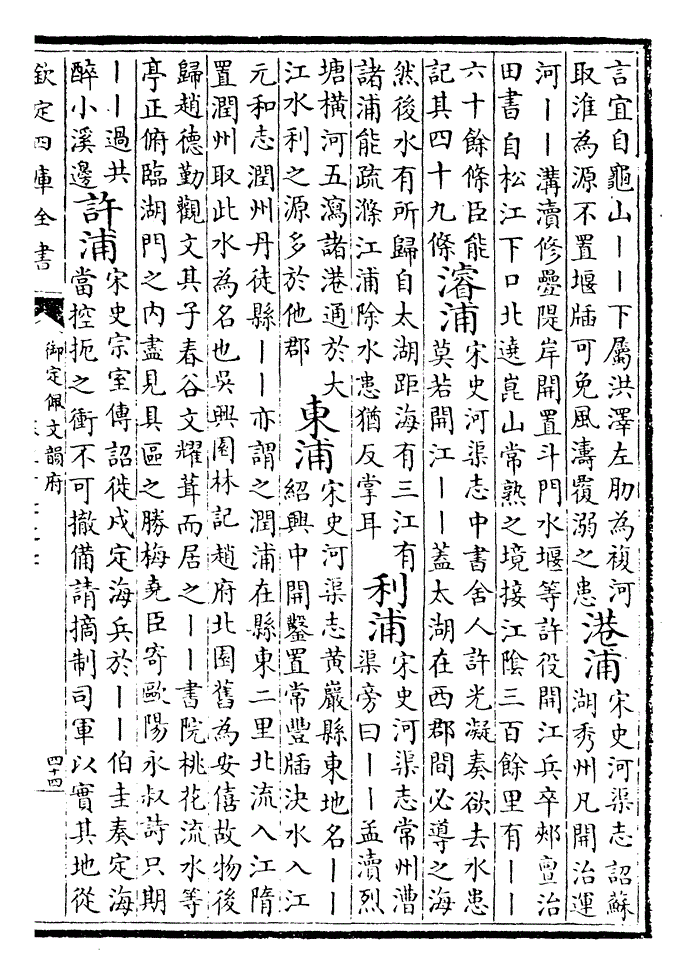 言宜自龜山丨丨下屬洪澤左肋為複河
取淮為源不置堰牐可免風濤覆溺之患
港浦
宋史河渠志詔蘇
湖秀州凡開治運
河丨丨溝瀆修疊隄岸開置斗門水堰等許役開江兵卒郟亶治
田書自松江下口北遶崑山常熟之境接江陰三百餘里有丨丨
六十餘條臣能
記其四十九條
濬浦
宋史河渠志中書舍人許光凝奏欲去水患
莫若開江丨丨蓋太湖在西郡間必導之海
然後水有所歸自太湖距海有三江有
諸浦能疏滌江浦除水患猶反掌耳
利浦
宋史河渠志常州漕
渠旁曰丨丨孟瀆烈
塘橫河五瀉諸港通於大
江水利之源多於他郡
東浦
宋史河渠志黃巖縣東地名丨丨
紹興中開鑿置常豐牐決水入江
元和志潤州丹徒縣丨丨亦謂之潤浦在縣東二里北流入江隋
置潤州取此水為名也吳興園林記趙府北園舊為安僖故物後
歸趙德勤觀文其子春谷文耀葺而居之丨丨書院桃花流水等
亭正俯臨湖門之內盡見具區之勝梅堯臣寄歐陽永叔詩只期
丨丨過共
醉小溪邊
許浦
宋史宗室傳詔徙戍定海兵於丨丨伯圭奏定海
當控扼之衝不可撤備請摘制司軍以實其地從
欽定四庫全書
御定佩文韻府
四十四